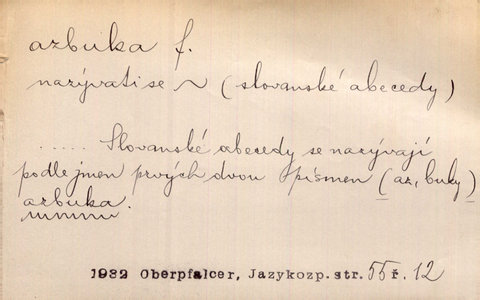 azbuka f.
nazývati se ~ (slovanské abecedy)
..... Slovanské abecedy se nazývají
podle jmen prvých dvou písmen (az, buky)
azbuka.
1932 Oberpfalcer, Jazykozp. str. 55 ř. 12